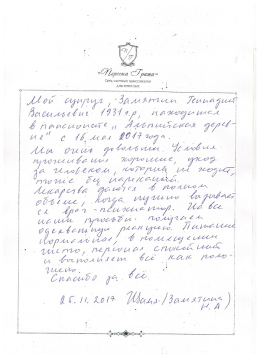 Мой супруг, Замятин Геннадий
Васильевич 1931 г.р, находится
в пансионате „Альпийская дерев-
ня" с 16 мая 2017 года.
Мы очень довольны. Условия
проживания хорошие, уход
за человеком, который не ходит,
тоже без нареканий.
Лекарства даются в полном
объеме, когда нужно вызывает-
ся врач-психиатр. На все
наши просьбы получаем
адекватную реакцию. Питание
нормальное, в помещении
чисто, персонал спокойный
и выполняет всё как поло-
жено.
Спасибо за всё.
25.11.2017 (Замятина)
Н.А